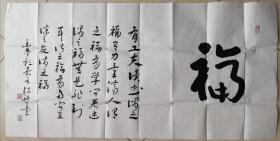 福
有工夫读书谓之
福有力量济人谓
之福有学问著述
谓之福無是非到
耳谓之福有多闻直
谅之友谓之福